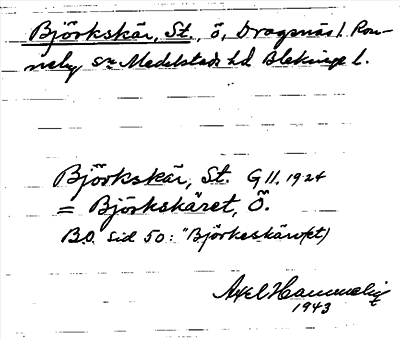 Björkskär, St., ö, Dragsnäs l. Ron-
neby sn Medelstads hd Blekinge l.
Björkskär, St. G11, 1924
= Björkskäret, Ö.
B.O. sid 50: "Björkeskär(et)
Axel Hammelig
1943